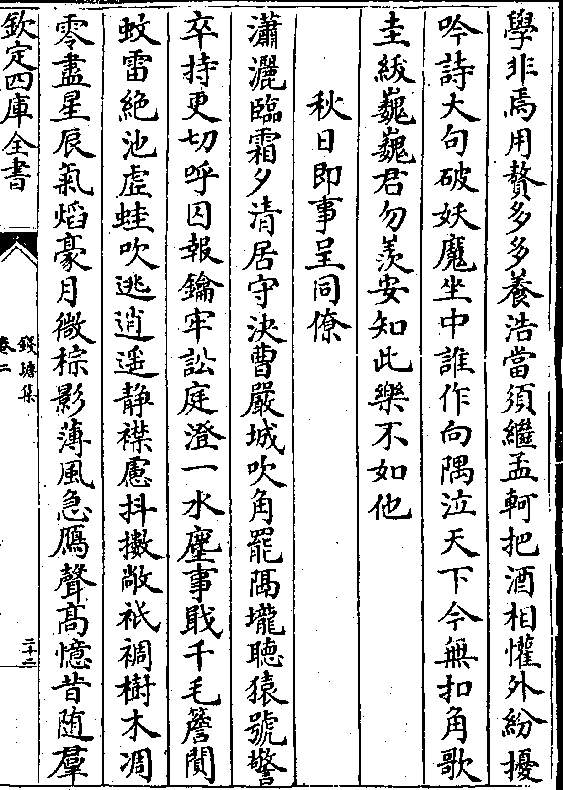 學非焉用贅多多養浩當須繼孟軻把酒相懽外紛擾
吟詩大句破妖魔坐中誰作向隅泣天下今無扣角歌
圭紱巍巍君勿羡安知此樂不如他
秋日即事呈同僚
瀟灑臨霜夕清居守決曹嚴城吹角罷隔壠聽猿號警
卒持更切呼囚報鑰牢訟庭澄一水塵事戢千毛簷間
蚊雷絶池虛蛙吹逃逍遥静襟慮抖擻敞衹裯樹木凋
零盡星辰氣焰豪月微棕影薄風急鴈聲髙憶昔随羣
欽定四庫全書
錢塘集
卷二
二十二